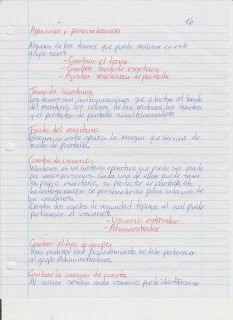 16
Apariencia y personalización
Algunas de las tareas que puede realizar en este
grupo son:
- Cambiar el tema
- Cambiar fondo de escritorio
- Ajustar resolución de pantalla.
Tema de Windows
los colores de las ventanas, los sonidos
y el protector de pantalla simultáneamente
Fondo del escritorio.
la imagen que servirá de
fondo de pantalla.
Cuentas de usuario.
Windows es un sistema operativo que puede ser usado
por varias personas. Cada una de ellas puede tener
su propio escritorio, su protector de pantalla, etc.
la configuración se personaliza para cada uno de
los usuarios.
Existen dos niveles de seguridad típicos al cual puede
pertenecer el usuario:
- Usuario estándar
- Administrador
Cambiar el tipo de grupo:
Para realizar este procedimiento se debe pertenecer
al grupo Administradores.
Cambiar la imagen de cuenta
Al iniciar sesión cada usuario puede identificarse